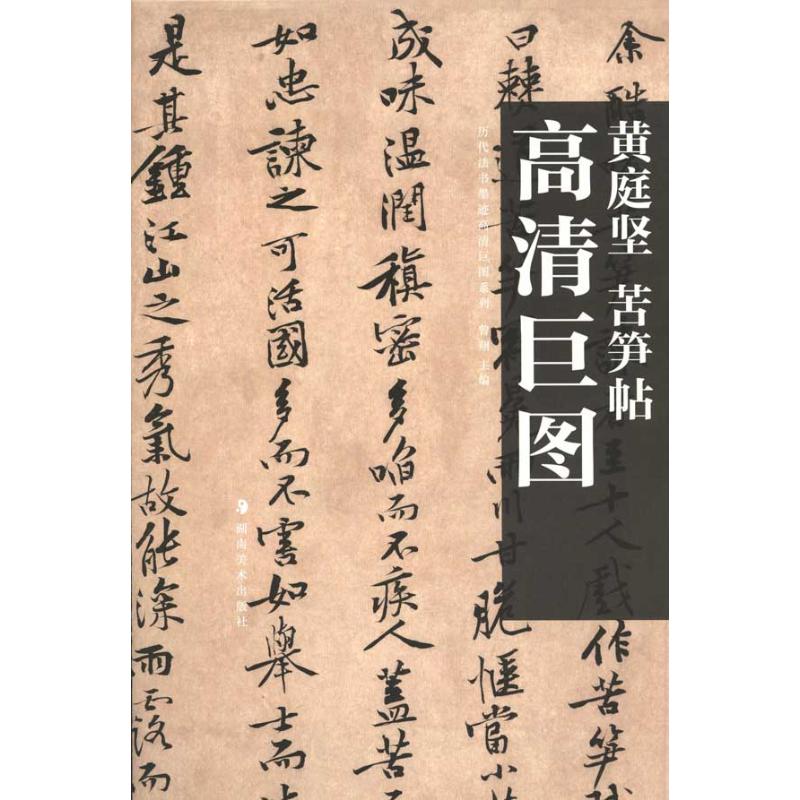 黄庭坚 苦笋帖
高清巨图
历代法书墨迹高清巨图系列 曾翔 主编
湖南美术出版社
余酷
至十人戏作苦笋赋
曰棘
甘脆惬当小苦而
成味温润稹密多啗而不疾人盖苦而
如忠谏之可活国多而不害如举士而
是其钟江山之秀气故能深雨露而